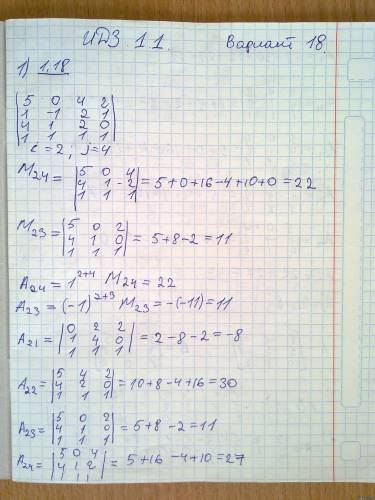 ИДЗ 1.1. Вариант 18.
1) 1.18
|5 0 4 2|
|1 -1 2 1|
|4 1 2 0|
|1 1 1 1|
i = 2; j = 4
M24 = |5 0 4|
|4 1 -2| = 5+0+16-4+10+0=22
|1 1 1|
M23 = |5 0 2|
|4 1 0| = 5+8-2=11
|1 1 1|
A24 = 1^2+4 M24 = 22
A23 = (-1)^2+3 M23 = -(-11)=11
A21 = |0 2 2|
|1 4 0| = 2-8-2=-8
|1 1 1|
A22 = |5 4 2|
|4 2 0| = 10+8-4+16=30
|1 1 1|
A23 = |5 0 2|
|4 1 0| = 5+8-2=11
|1 1 1|
A24 = |5 0 4|
|4 1 2| = 5+16-4+10=27